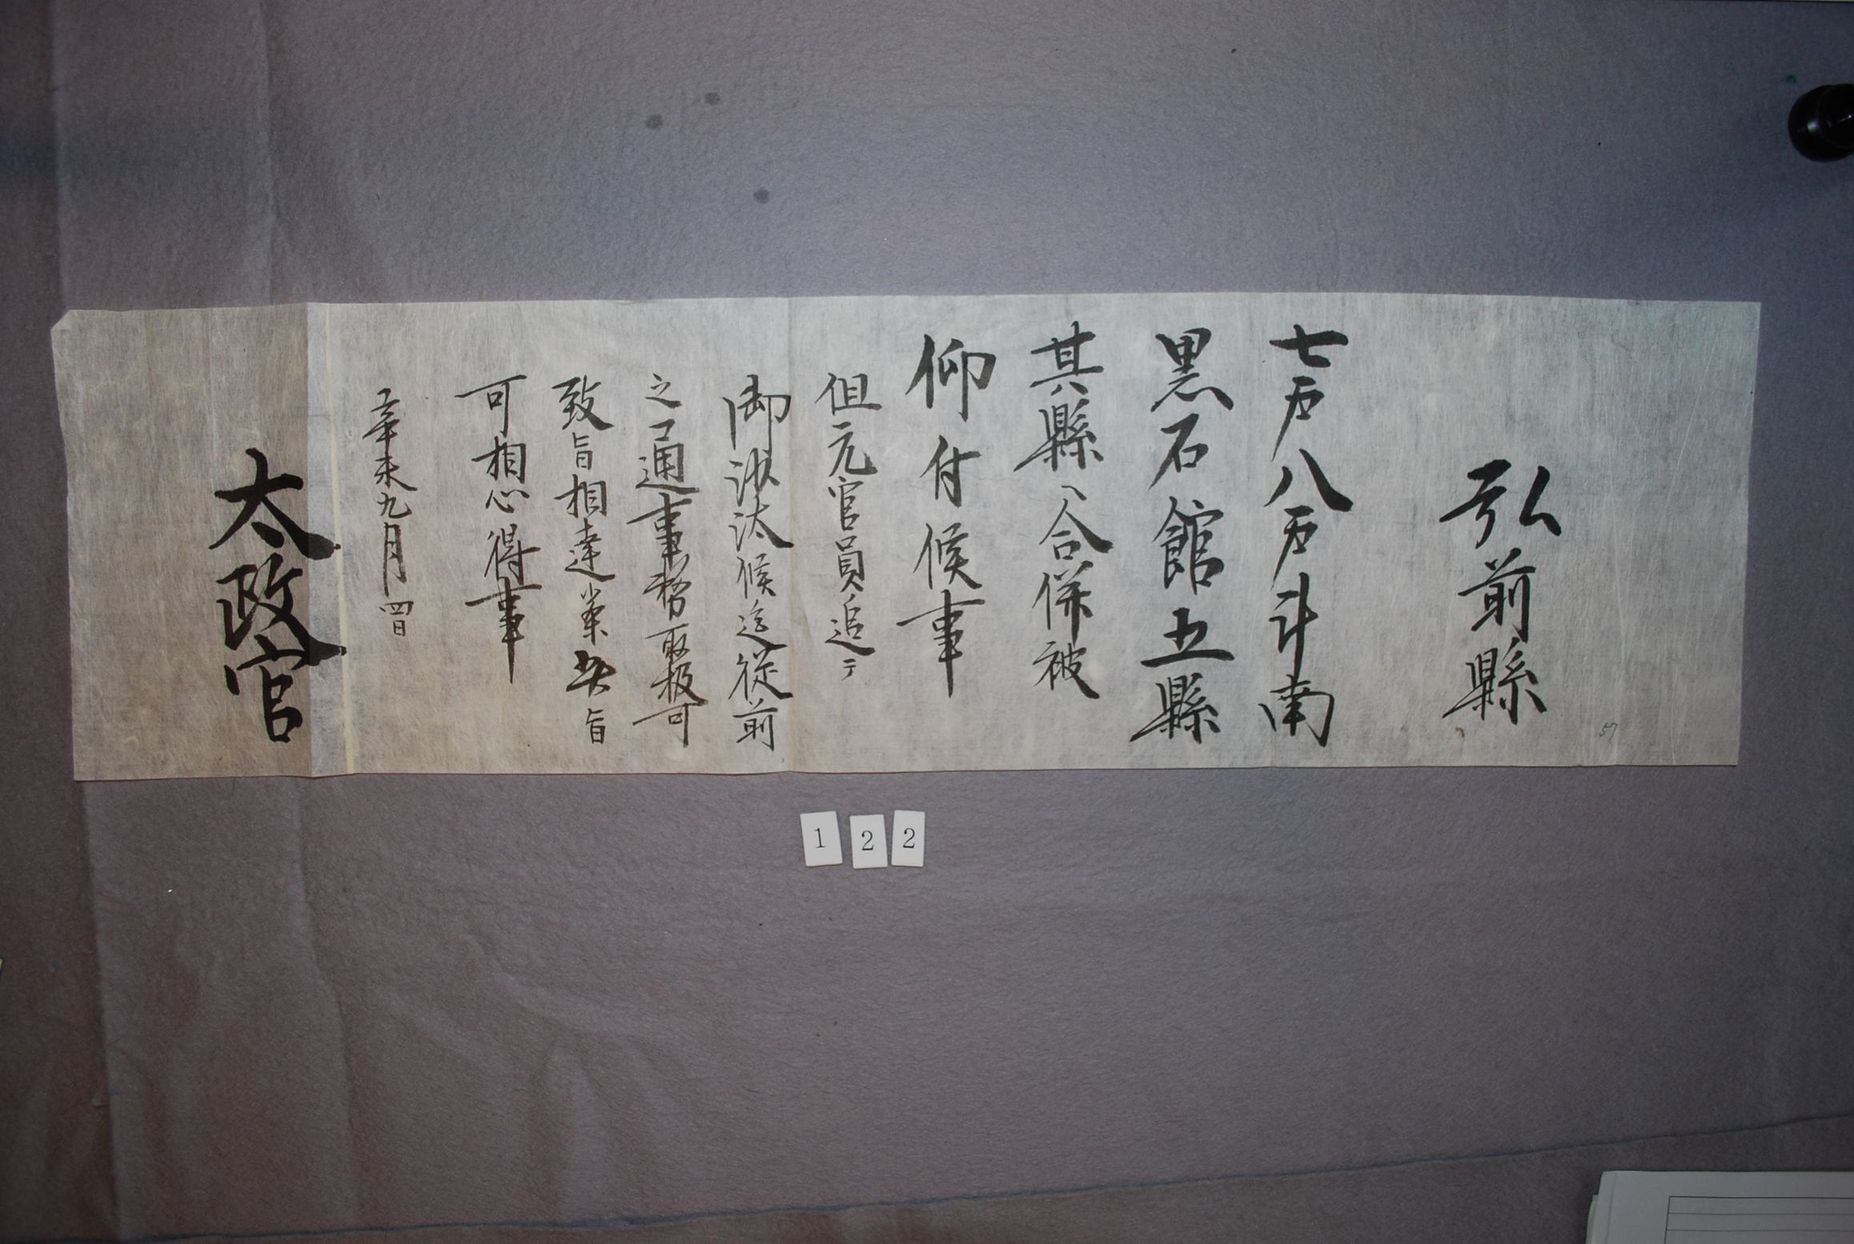 弘前縣
七戸八戸斗南
黒石館五縣
其縣へ合併被
仰付候事
但元官員追テ
御沙汰候迄従前
之通事務取扱可
致旨相達候条其旨
可相心得事
辛未九月四日
太政官
57
122